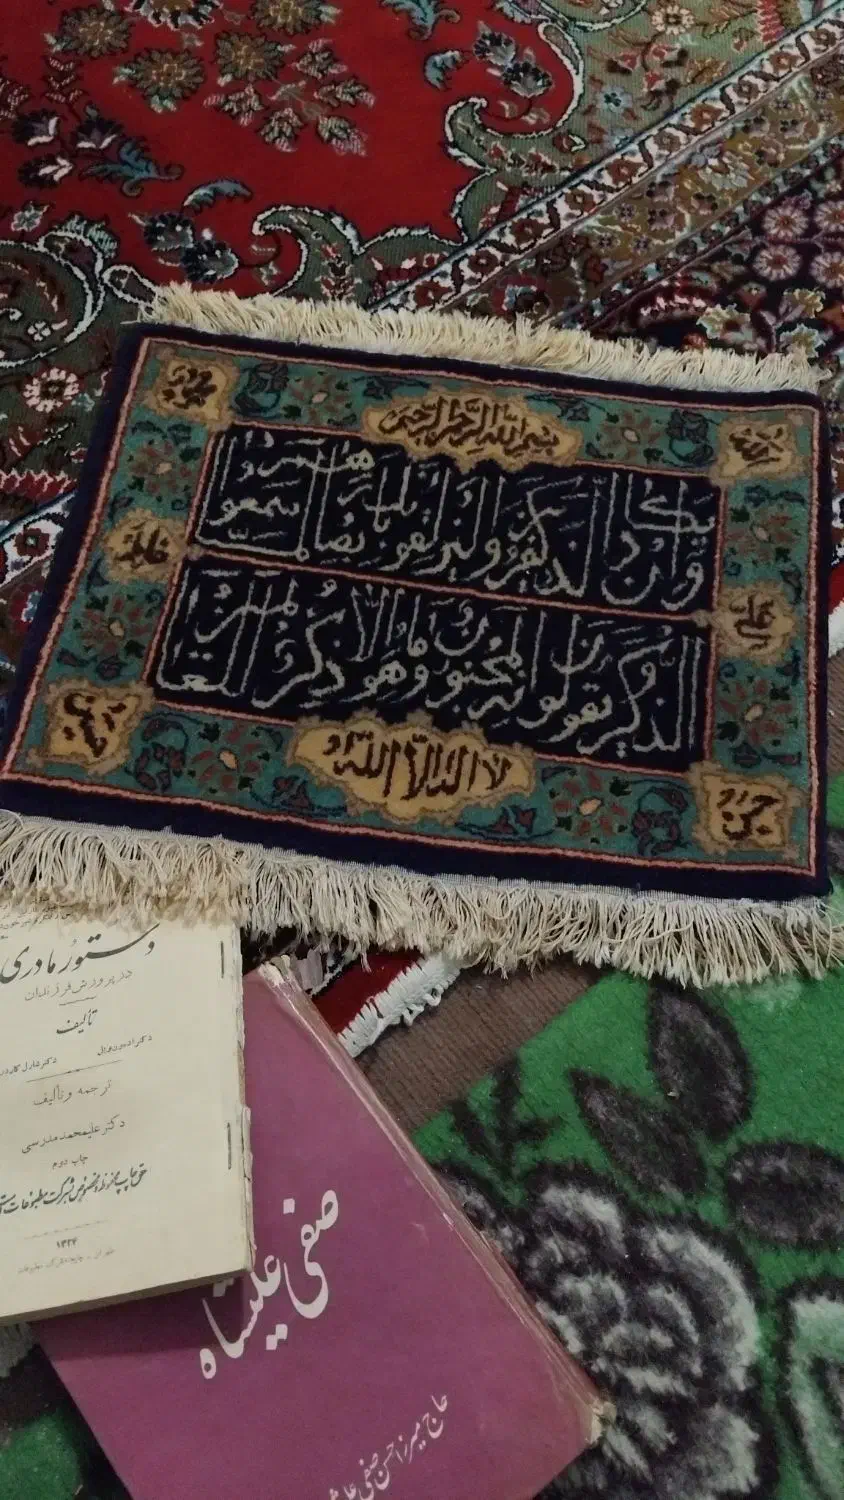 محمد
بسم الله الرحمن الرحیم
الله
وان یکاد الذین کفروا لیزلقونک بابصارهم لما سمعوا
فاطمه
علی
الذکر ویقولون انه لمجنون وما هو الا ذکر للعالمین
حسین
لا اله الا الله
حسن
دستور مادری
در پرورش فرزندان
تألیف
ترجمه و تألیف
دکتر علیمحمد مدرسی
چاپ دوم
حق چاپ محفوظ و مخصوص شرکت مطبوعات
۱۳۲۴
صفی علیشاه
حاج میرزا حسن صفی